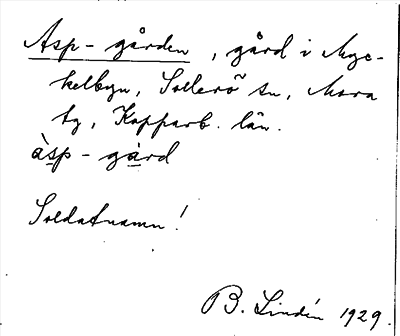 Asp-gården, gård i Myc-
kelbyn, Sollerö sn, Mora
tg, Kopparb. län.
àsp-gård
Soldatnamn!
B. Lindén 1929